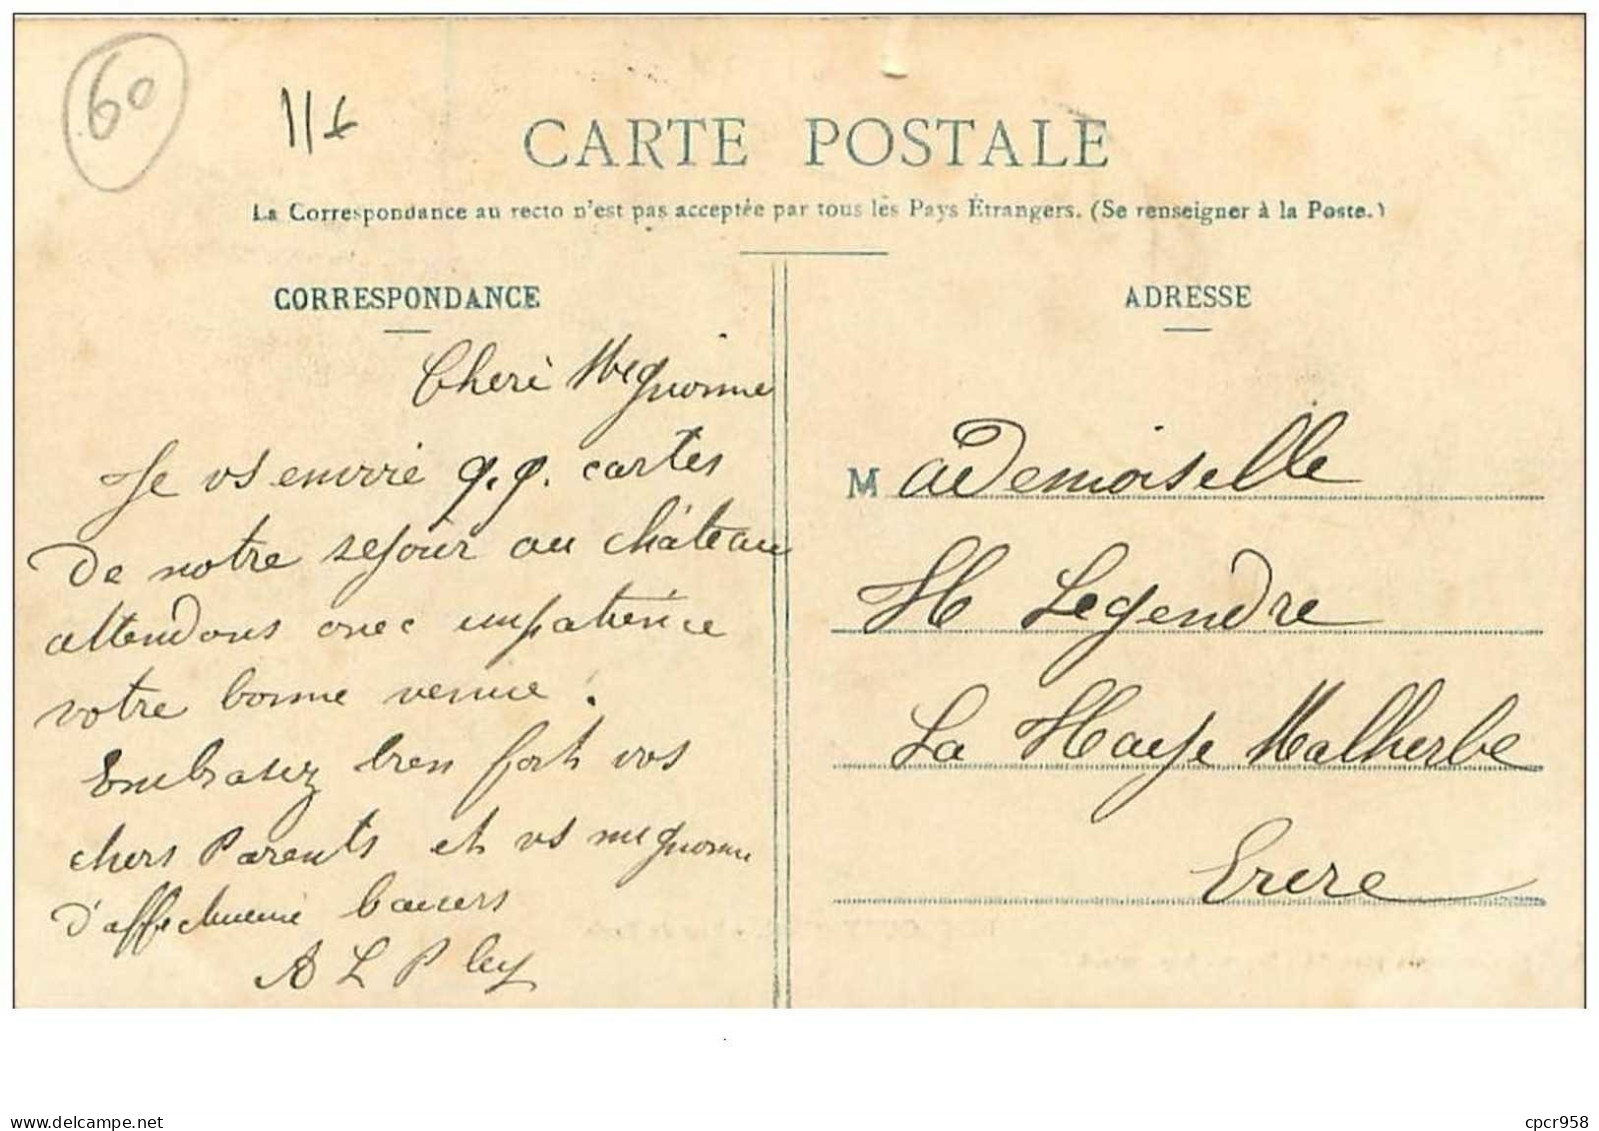 60
CARTE POSTALE
La Correspondance au recto n'est pas acceptée par tous les Pays Étrangers. (Se renseigner à la Poste.)
CORRESPONDANCE
Cheri Mignonne
Je vs envoie q.q. cartes
De notre sejour au château
attendons avec impatience
votre bonne venue.
Embrassez bien fort vos
chers Parents et vs mignonne
D'affectueux baisers
A L P
ADRESSE
Mademoiselle
M Legendre
La Haye Malherbe
Eure
www.delcampe.net
cpcr958